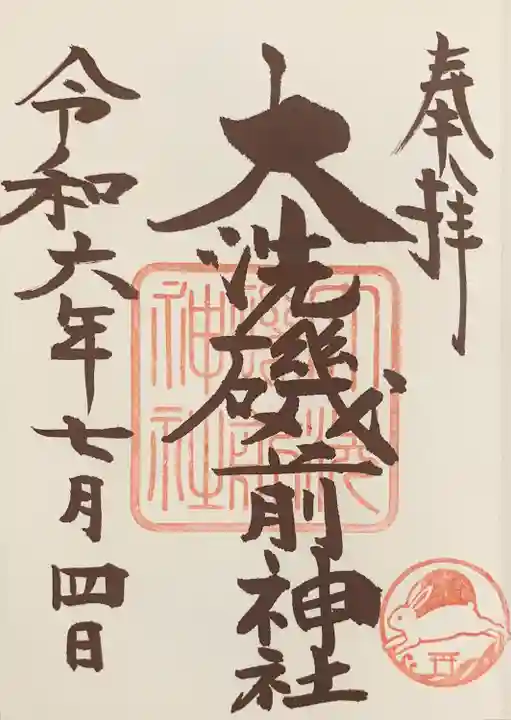 奉拝
大洗磯前神社
令和六年七月四日
大洗磯前神社